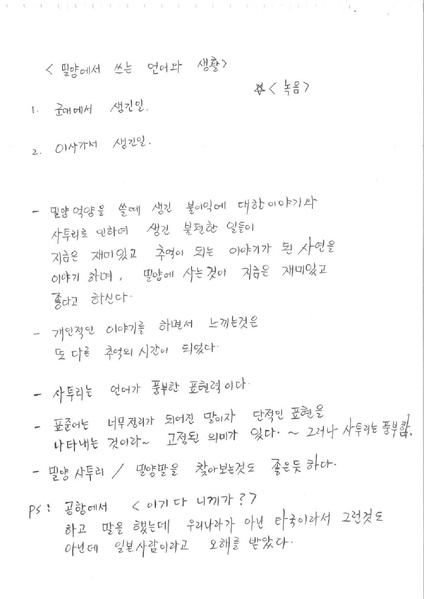 < 밀양에서 쓰는 언어와 생활>
☆< 녹음>
1. 군대에서 생긴일.
2. 이사가서 생긴일.
- 밀양 억양을 쓸때 생긴 불이익에 대한이야기와
사투리로 인하여 생긴 불편한 일들이
지금은 재미있고 추억이 되는 이야기가 된 사연을
이야기 하며, 밀양에 사는것이 지금은 재미있고
좋다고 하신다.
- 개인적인 이야기를 하면서 느끼는것은
또 다른 추억의 시간이 되었다.
- 사투리는 언어가 풍부한 표현력이다.
- 표준어는 너무정리가 되어진 말이자 단적인 표현을
나타내는 것이라~ 고정된 의미가 있다. ~ 그러나 사투리는 풍부함.
- 밀양 사투리 / 밀양말을 찾아보는것도 좋은듯 하다.
PS : 공항에서 < 이기 다 니끼가?>
하고 말을 했는데 우리나라가 아닌 타국이라서 그런것도
아닌데 일본사람이라고 오해를 받았다.